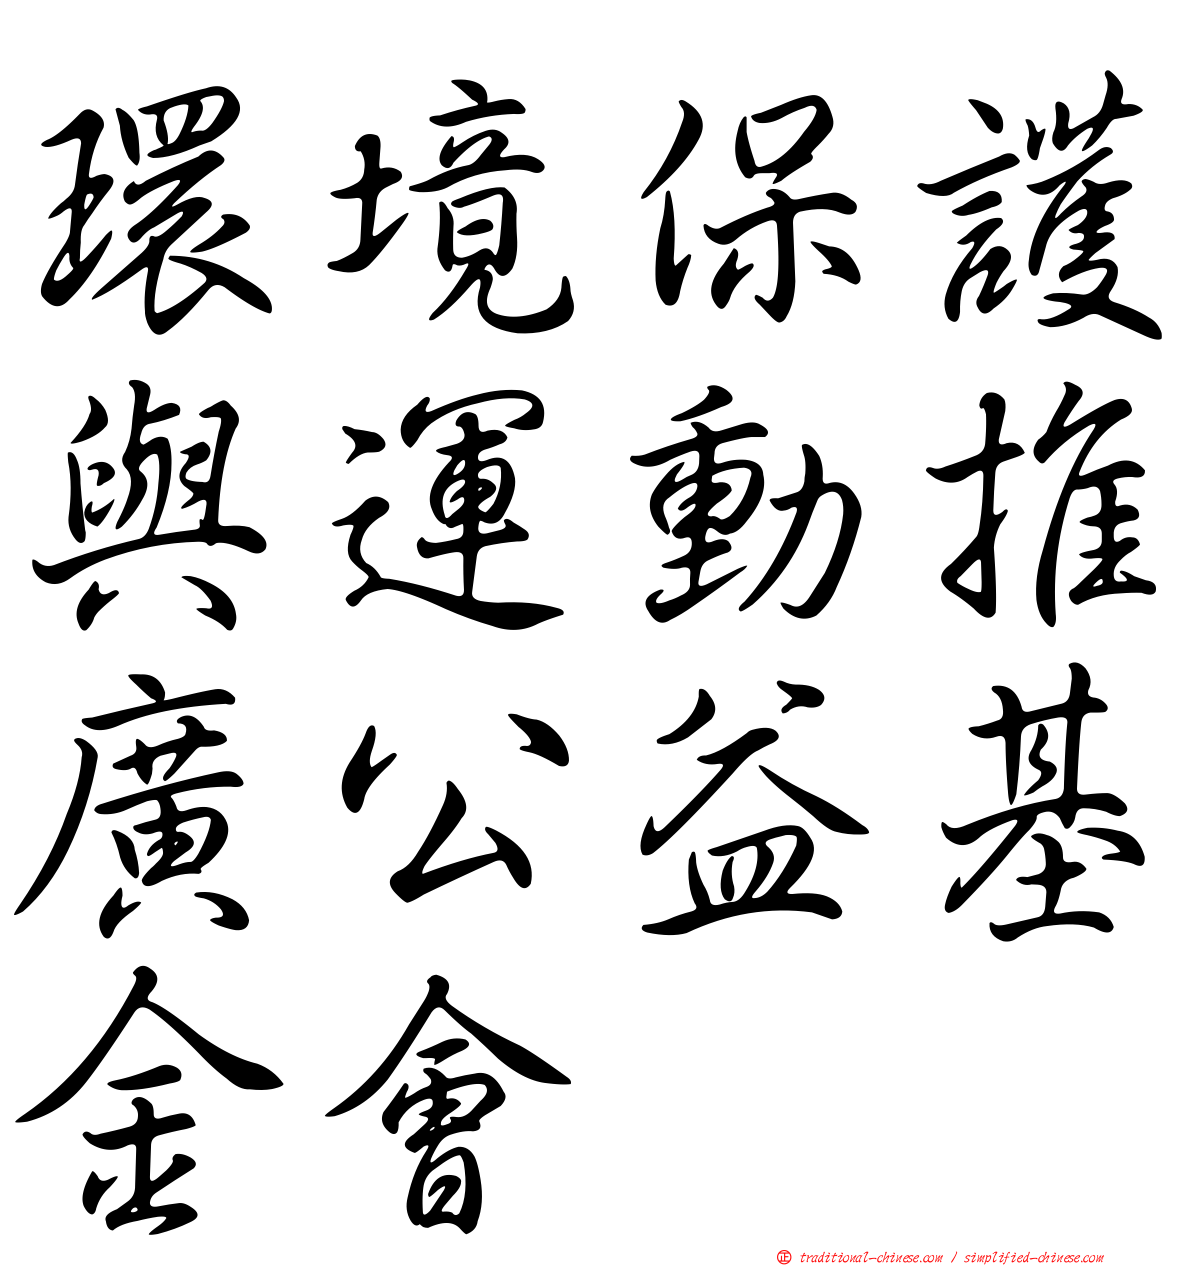 環境保護
與運動推
廣公益基
金會
正 traditional-chinese.com / simplified-chinese.com